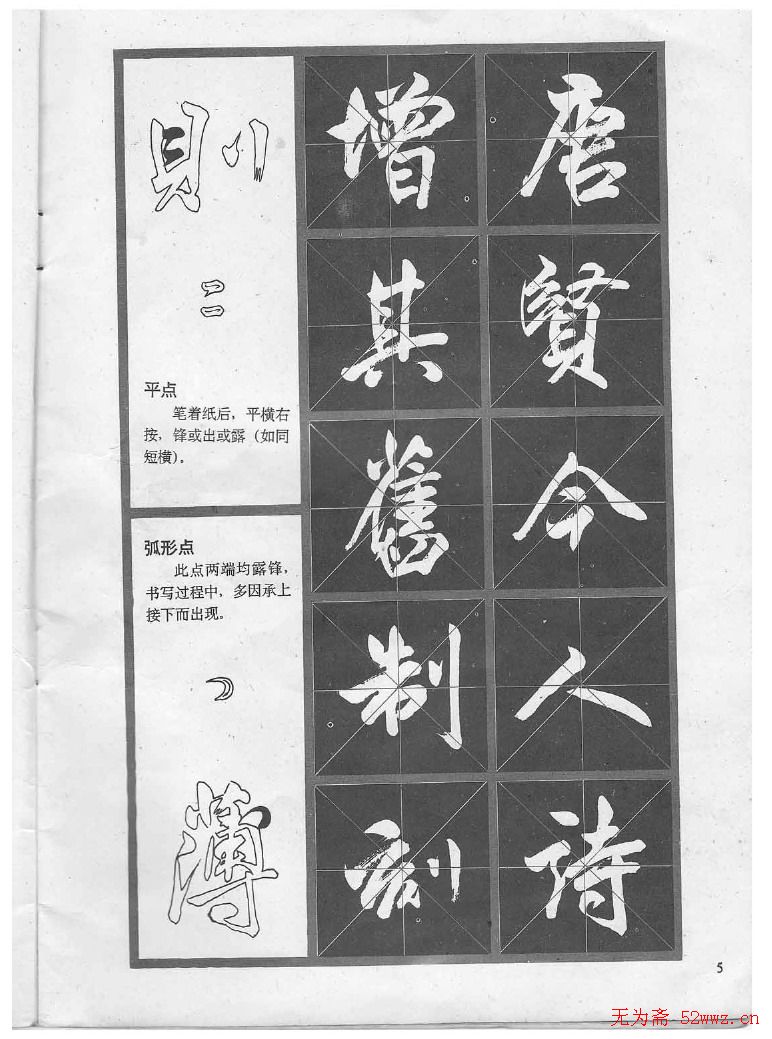 則
平点
笔着纸后，平横右
按，锋或出或露（如同
短横）。
弧形点
此点两端均露锋，
书写过程中，多因承上
接下而出现。
薄
增其舊制刻
唐賢今人詩
5
无为斋-52wwz.cn